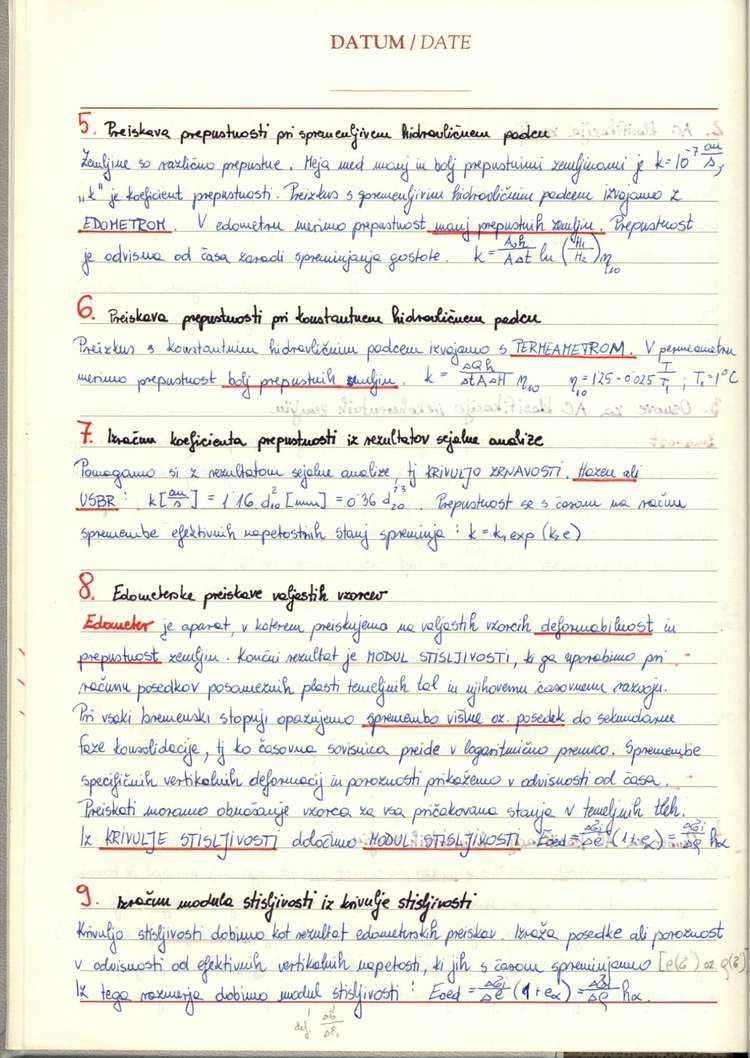 DATUM / DATE
5. Preiskava prepustnosti pri spremenljivem hidravličnem padcu
Zemljine so različno prepustne. Meja med manj in bolj prepustnimi zemljinami je k = 10⁻⁷ cm/s,
"k" je koeficient prepustnosti. Preizkus s spremenljivim hidravličnim padcem izvajamo z
EDOMETROM. V edometru merimo prepustnost manj prepustnih zemljin. Prepustnost
je odvisna od časa zaradi spreminjanja gostote. k = A₀h/AΔt ln (H₁/H₂) η₁₀
6. Preiskava prepustnosti pri konstantnem hidravličnem padcu
Preizkus s konstantnim hidravličnim padcem izvajamo s PERMEAMETROM. V permeametru
merimo prepustnost bolj prepustnih zemljin. k = ΔQh/ΔtAΔH η₁₀ η = 1'25 - 0'025 T/T₁ ; T₁ = 1°C
7. Izračun koeficienta prepustnosti iz rezultatov sejalne analize
Pomagamo si z rezultatom sejalne analize, tj KRIVULJO ZRNAVOSTI. Hazen ali
USBR : k[cm/s] = 1'16 d₁₀² [mm] = 0'36 d₂₀²'³. Prepustnost se s časom na račun
spremembe efektivnih napetostnih stanj spreminja : k = k₁ exp (k₂ e)
8. Edometerske preiskave valjastih vzorcev
Edometer je aparat, v katerem preiskujemo na valjastih vzorcih deformabilnost in
prepustnost zemljin. Končni rezultat je MODUL STISLJIVOSTI, ki ga uporabimo pri
računu posedkov posameznih plasti temeljnih tal in njihovemu časovnemu razvoju.
Pri vsaki bremenski stopnji opazujemo spremembo višine oz. posedek do sekundarne
faze konsolidacije, tj ko časovna sovisnica preide v logaritmično premico. Spremembe
specifičnih vertikalnih deformacij in poroznosti prikažemo v odvisnosti od časa.
Preiskati moramo obnašanje vzorca za vsa pričakovana stanja v temeljnih tleh.
Iz KRIVULJE STISLJIVOSTI določimo MODUL STISLJIVOSTI Eoed = Δσ'/Δe (1+eα) = Δσ'/Δρ hα
9. Izračun modula stisljivosti iz krivulje stisljivosti
Krivuljo stisljivosti dobimo kot rezultat edometerskih preiskav. Izraža posedke ali poroznost
v odvisnosti od efektivnih vertikalnih napetosti, ki jih s časom spreminjamo [e(σ') oz ρ(σ')]
Iz tega razmerja dobimo modul stisljivosti : Eoed = Δσ'/Δe (1+eα) = Δσ'/Δρ hα.